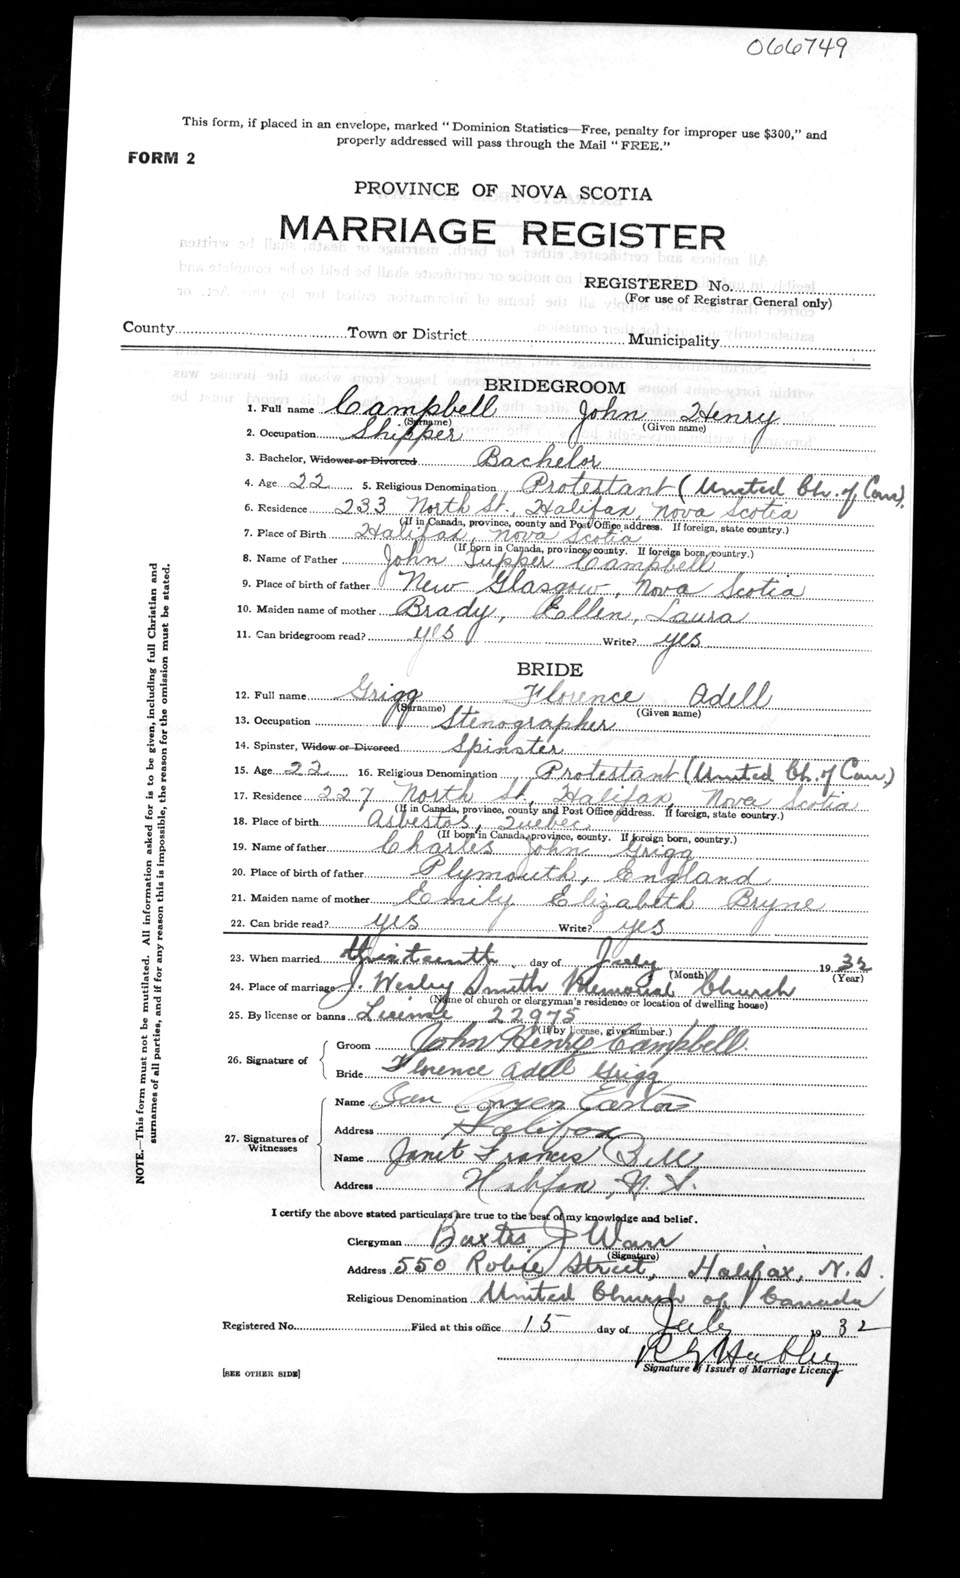 066749
This form, if placed in an envelope, marked "Dominion Statistics—Free, penalty for improper use $300," and
properly addressed will pass through the Mail "FREE."
FORM 2
PROVINCE OF NOVA SCOTIA
MARRIAGE REGISTER
REGISTERED No.
(For use of Registrar General only)
County Town or District Municipality
BRIDEGROOM
1. Full name Campbell John Henry
(Surname) (Given name)
2. Occupation Shipper
3. Bachelor, Widower or Divorced Bachelor
4. Age 22 5. Religious Denomination Protestant (United Ch. of Can).
6. Residence 233 North St., Halifax, Nova Scotia
(If in Canada, province, county and Post Office address. If foreign, state country.)
7. Place of Birth Halifax, Nova Scotia
(If born in Canada, province, county. If foreign born, country.)
8. Name of Father John Tupper Campbell
9. Place of birth of father New Glasgow, Nova Scotia
10. Maiden name of mother Brady, Ellen, Laura
11. Can bridegroom read? yes Write? yes
BRIDE
12. Full name Grigg Florence Adell
(Surname) (Given name)
13. Occupation Stenographer
14. Spinster, Widow or Divorced Spinster
15. Age 22 16. Religious Denomination Protestant (United Ch. of Can.)
17. Residence 227 North St., Halifax, Nova Scotia
(If in Canada, province, county and Post Office address. If foreign, state country.)
18. Place of birth Asbestos, Quebec
(If born in Canada, province, county. If foreign born, country.)
19. Name of father Charles John Grigg
20. Place of birth of father Plymouth, England
21. Maiden name of mother Emily Elizabeth Bryne
22. Can bride read? yes Write? yes
23. When married thirteenth day of July 1932
(Month) (Year)
24. Place of marriage J. Wesley Smith Memorial Church
(Name of church or clergyman's residence or location of dwelling house)
25. By license or banns License 22975
(If by license, give number.)
26. Signature of Groom John Henry Campbell.
Bride Florence Adell Grigg
27. Signatures of Witnesses
Name Easton
Address Halifax
Name Janet Francis Bell
Address Halifax, N.S.
I certify the above stated particulars are true to the best of my knowledge and belief.
Clergyman Baxter J Warr
(Signature)
Address 550 Robie Street, Halifax, N.S.
Religious Denomination United Church of Canada
Registered No. Filed at this office 15 day of July 1932
Signature of Issuer of Marriage Licence
[SEE OTHER SIDE]
NOTE.—This form must not be mutilated. All information asked for is to be given, including full Christian and
surnames of all parties, and if for any reason this is impossible, the reason for the omission must be stated.